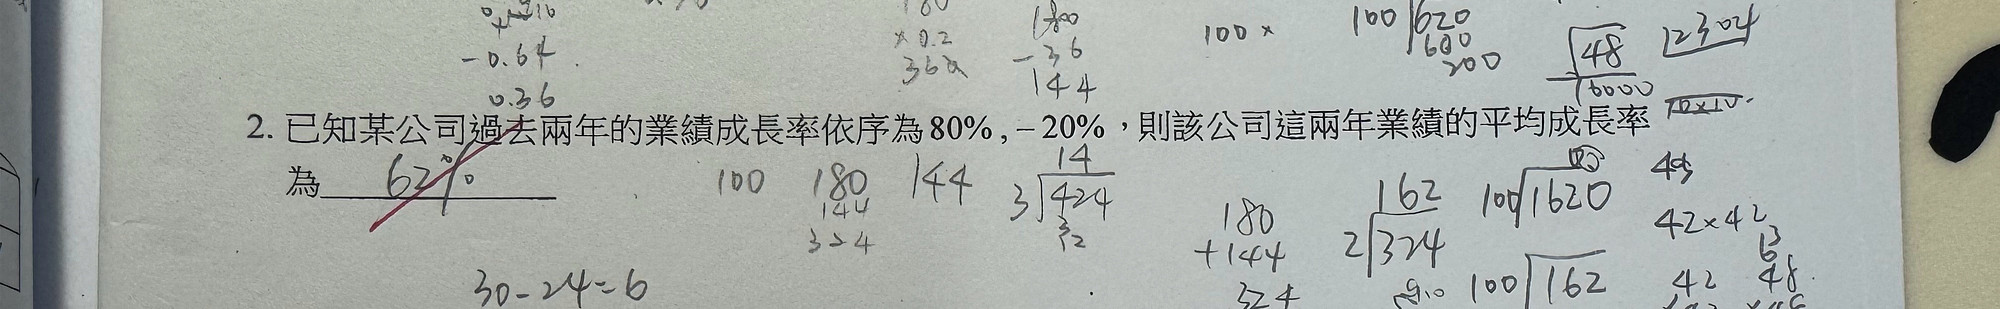 -0.64
0.36
180
× 0.2
360
1800
-36
144
100 ×
100 620
600
200
48
2304
2. 已知某公司過去兩年的業績成長率依序為 80% , – 20% ，則該公司這兩年業績的平均成長率
為 62%
100 180 144
144
324
14
3 424
12
180
+144
324
162
2 324
100 1620
100 162
42×42
42 48
30-24=6